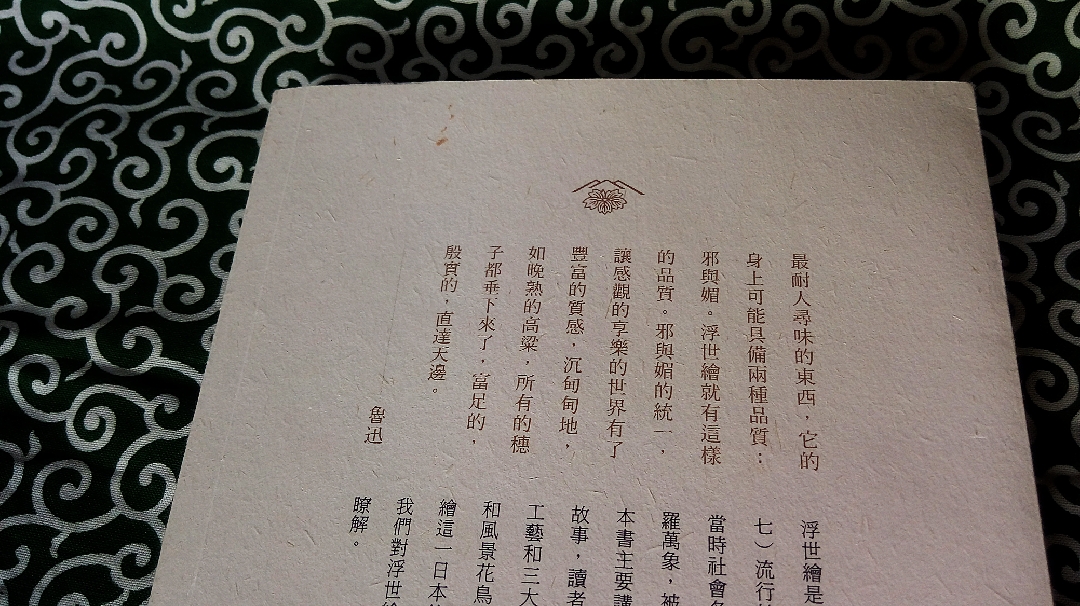 最耐人尋味的東西，它的
身上可能具備兩種品質：
邪與媚。浮世繪就有這樣
的品質。邪與媚的統一，
讓感觀的享樂的世界有了
豐富的質感，沉甸甸地，
如晚熟的高粱，所有的穗
子都垂下來了，富足的，
殷實的，直達天邊。
魯迅
浮世繪是
七）流行於
當時社會各
羅萬象，被
本書主要講
故事，讀者
工藝和三大
和風景花鳥
繪這一日本
我們對浮世繪
瞭解。